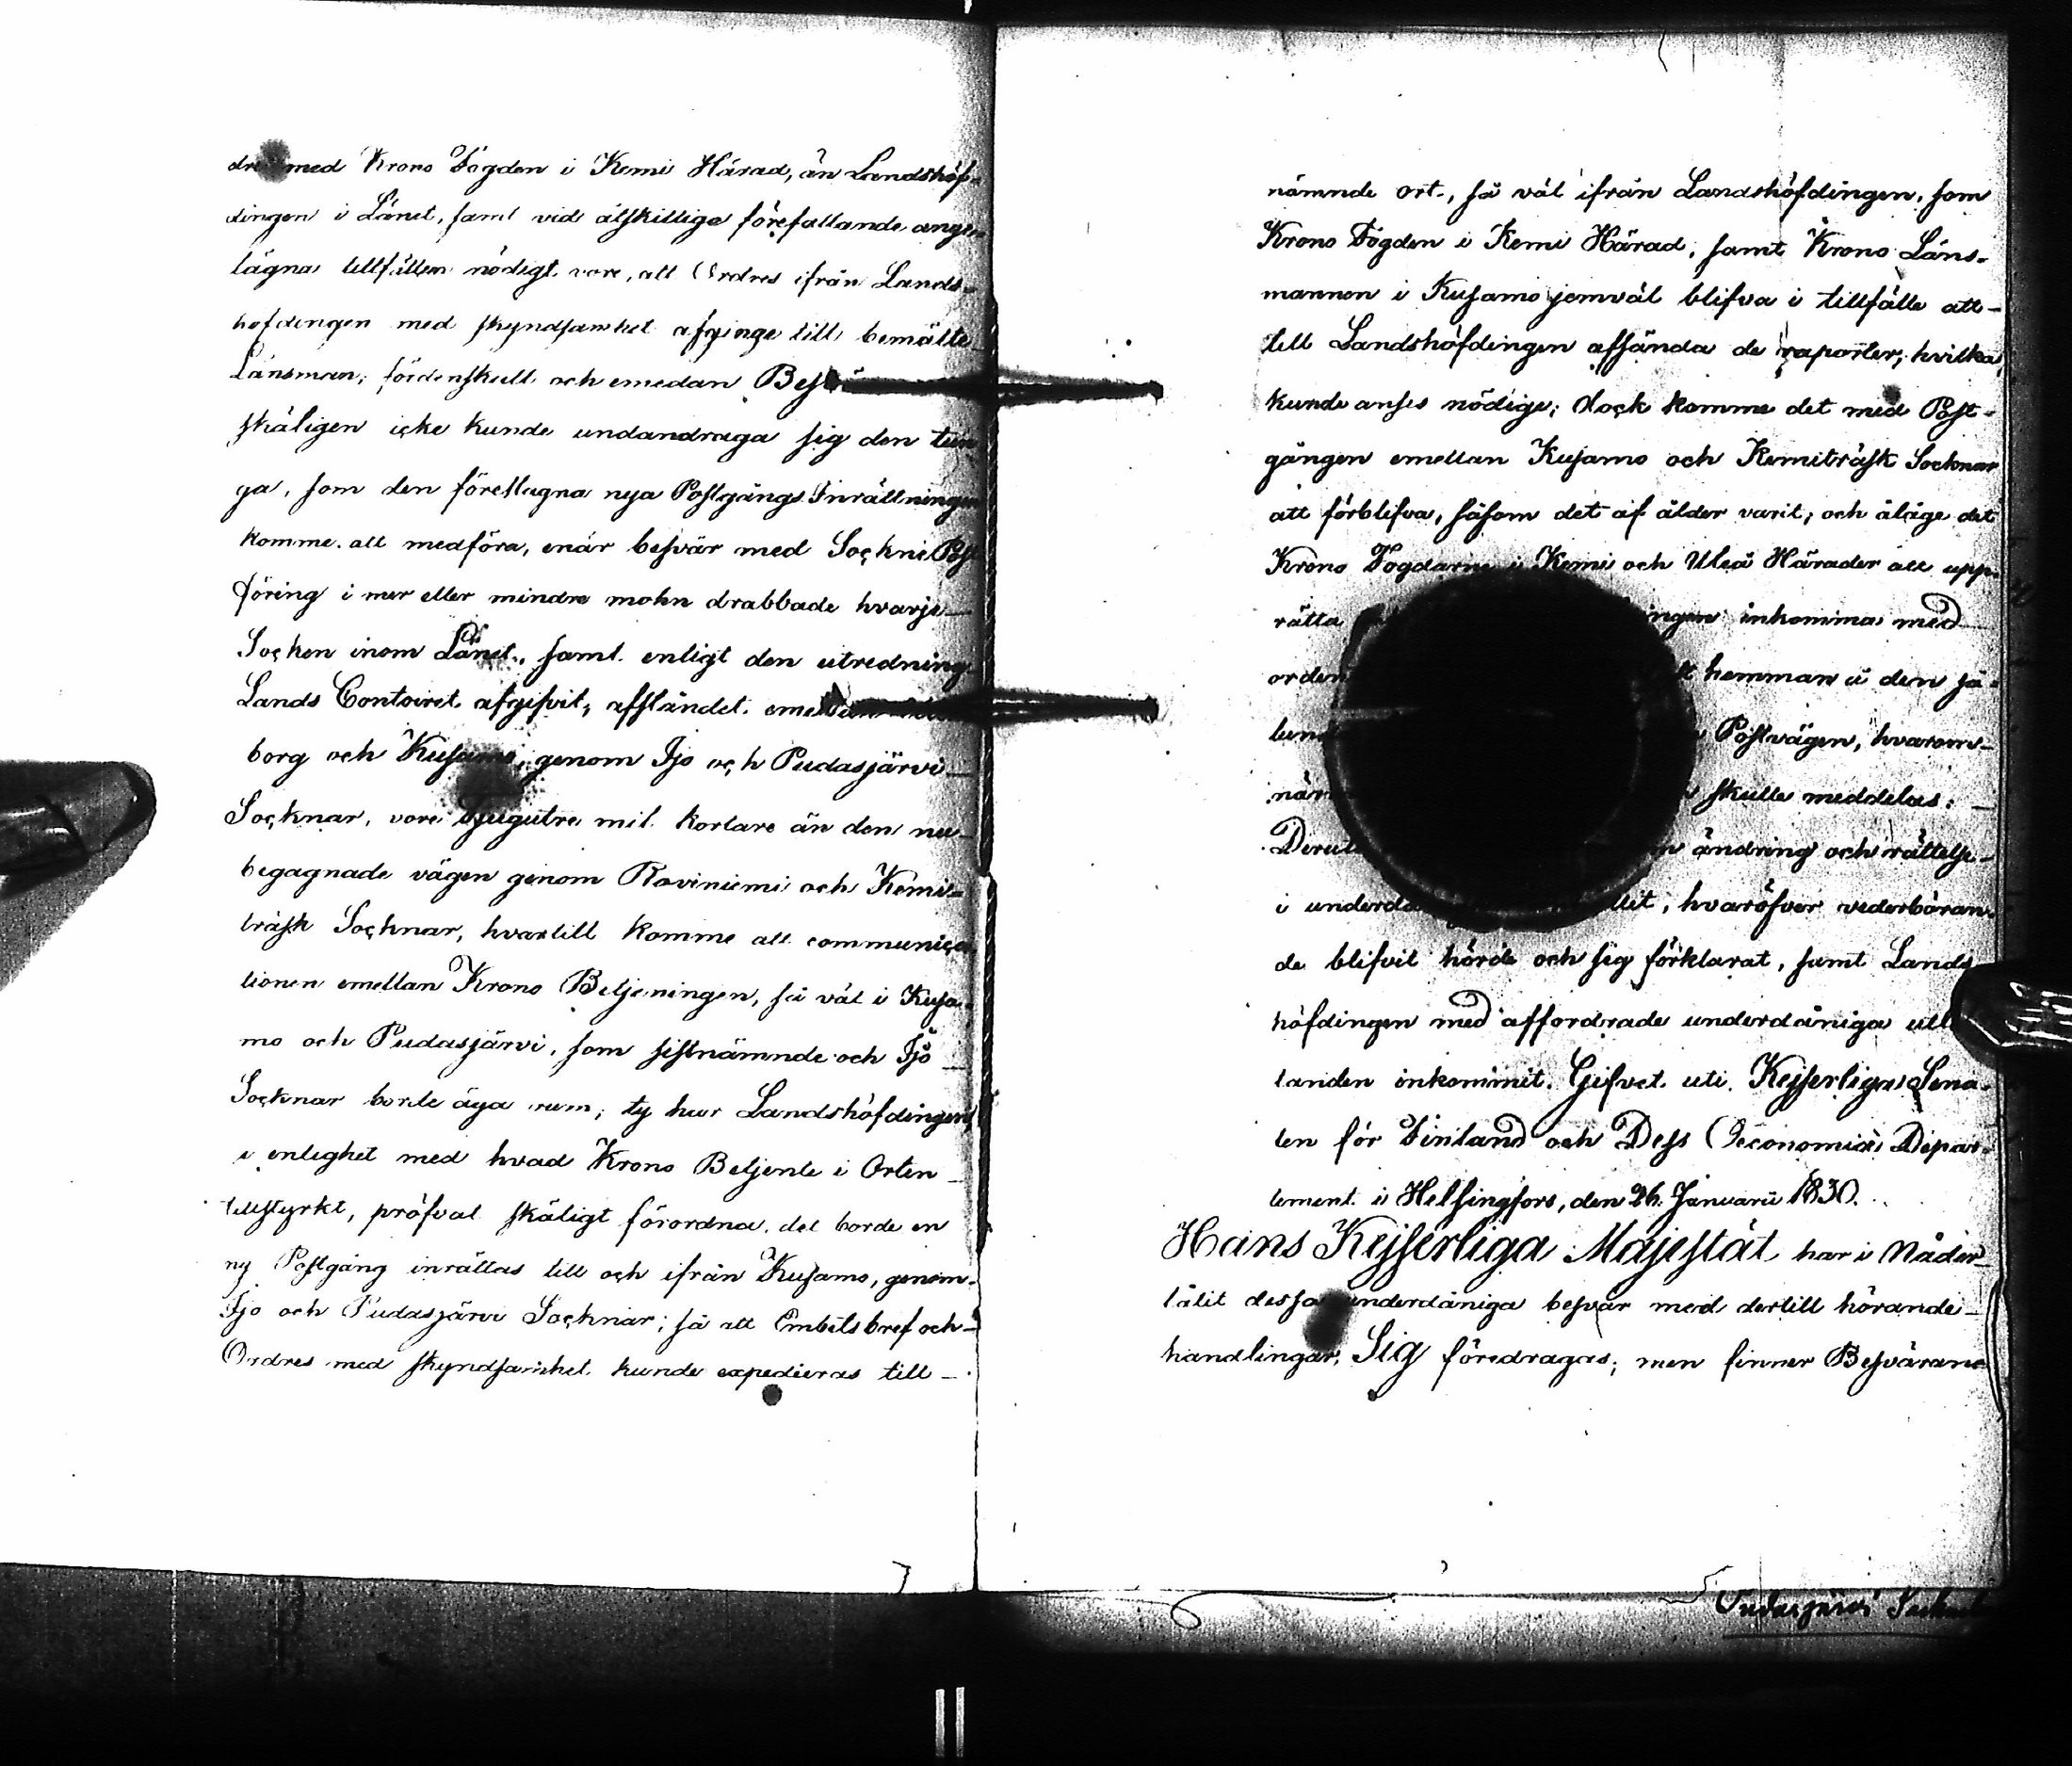 med Krono Fogden i Kemi Härad, än Landshöf-
dingen i Länet, samt vid åtskillige förefallande ange-
lägna tillfällen nödigt vore, att Ordres ifrån Lands-
höfdingen med skyndsamhet afginge till bemälte
Länsman; fördenskull och emedan
skäligen icke kunde undandraga sig den tun
ga, som den föreslagna nya Postgångs Inrättningen
komme att medföra, enär besvär med Sockne Post
föring i mer eller mindre mohn drabbade hvarje
Socken inom Länet, samt enligt den utredning
Lands Contoiret afgifvit, afståndet emellan
borg och Kusamo, genom Ijo och Pudasjärvi
Socknar, vore tjugutre mil kortare än den nu
begagnade vägen genom Roviniemi och Kemi-
träsk Socknar, hvartill komme att communica
tionen emellan Krono Betjeningen, så väl i Kusa-
mo och Pudasjärvi, som sistnämnde och Ijo
Socknar borde äga rum; ty hur Landshöfdingen
i enlighet med hvad Krono Betjente i Orten
tillstyrkt, pröfvat skäligt förordna, det borde en
ny Postgång inrättas till och ifrån Kusamo, genom
Ijo och Pudasjärvi Socknar; så att Embetsbref och
Ordres med skyndsamhet kunde expedieras till
nämnde ort, så väl ifrån Landshöfdingen, som
Krono Fogden i Kemi Härad, samt Krono Läns-
mannen i Kusamo jemväl blifva i tillfälle att
till Landshöfdingen afsända de raporter, hvilka
kunde anses nödige; dock komme det med Post-
gången emellan Kusamo och Kemiträsk Socknar
att förblifva, såsom det af ålder varit; och ålåge det
Krono Fogdarne i Kemi och Uleå Härader att upp-
rätta ingen inkomma med
hemman å den så-
Postvägen, hvarom
skulle meddelas:
ändring och rättelse
i hvaröfver vederböran-
de blifvit hörde och sig förklarat, samt Lands
höfdingen med affordrade underdåniga utlå
tanden inkommit. Gifvet uti Kejserliga Sena-
ten för Finland och Dess Oeconomiæ Depar-
tement i Helsingfors, den 26 Januarii 1830.
Hans Kejserliga Majestät har i Nåder
låtit dessa underdåniga besvär med dertill hörande
handlingar, Sig föredragas; men finner Besvärane
Pudasjärvi